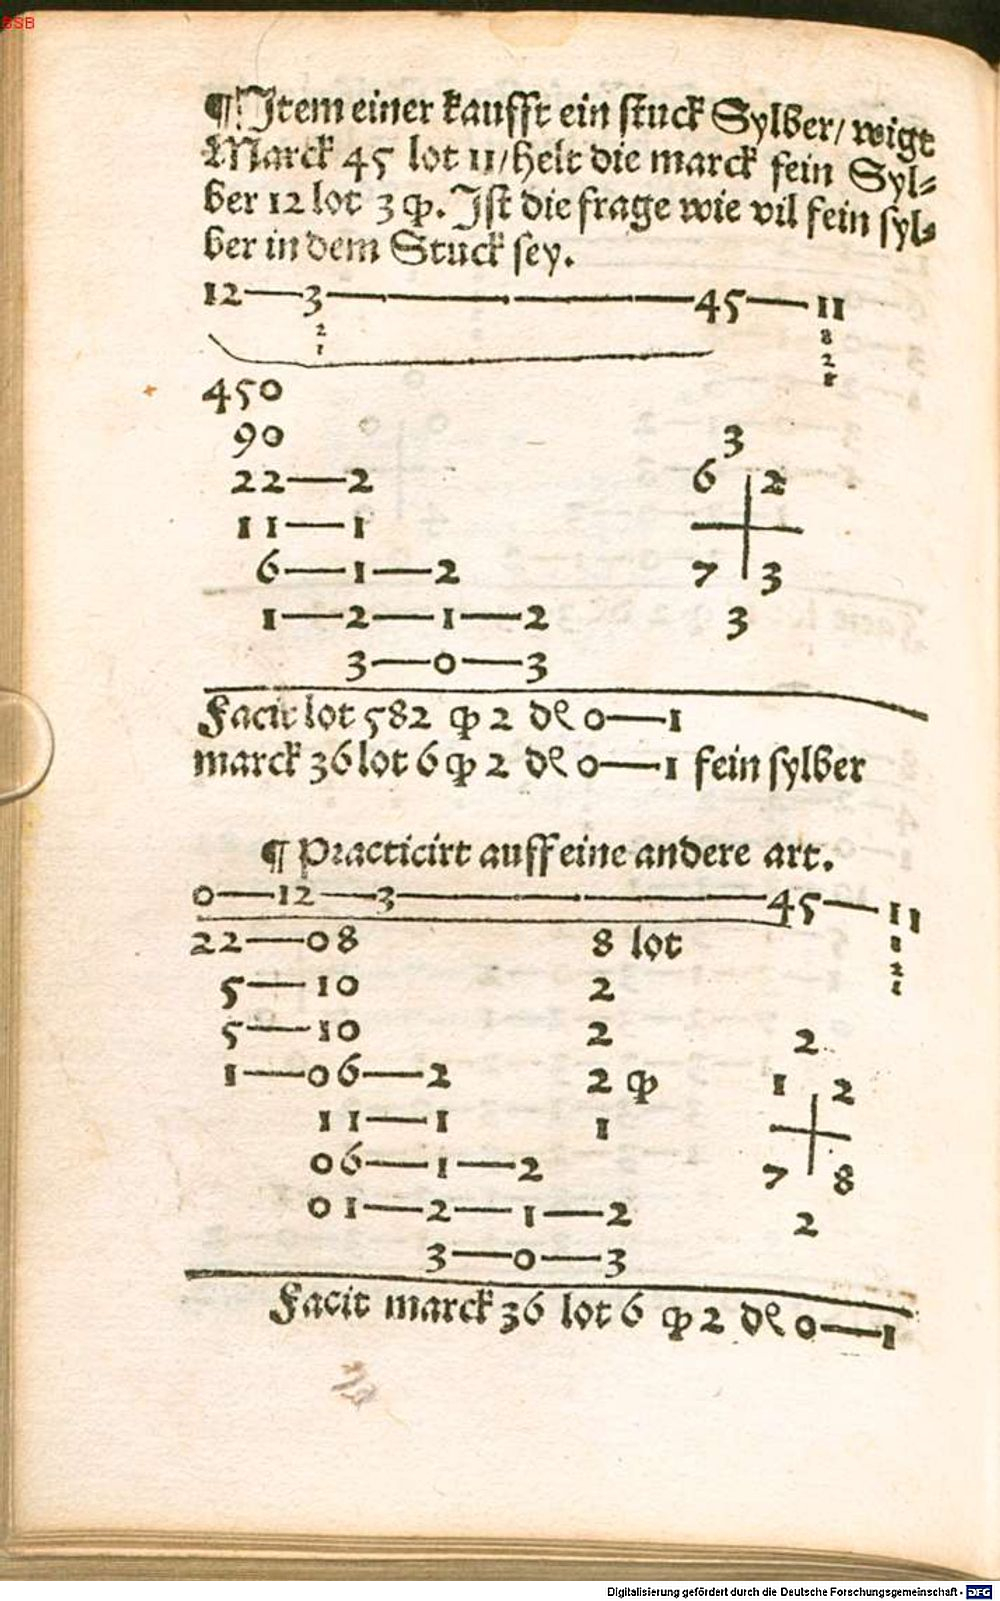 BSB
¶ Item einer kaufft ein stuck Sylber/ wigt
Marck 45 lot 11/ helt die marck fein Syl⸗
ber 12 lot 3 qp. Ist die frage wie vil fein syl⸗
ber in dem Stuck sey.
12—3————45—11
2 8
1 2
1
450
90 3
22—2 6 2
11—1
6—1—2 7 3
1—2—1—2 3
3—0—3
Facit lot 582 qp 2 ₰ 0—1
marck 36 lot 6 qp 2 ₰ 0—1 fein sylber
¶ Practicirt auff eine andere art.
0—12—3————45—11
22—08 8 lot 8
5—10 2 2
1
5—10 2 2
1—06—2 2 qp 1 2
11—1 1
06—1—2 7 8
01—2—1—2 2
3—0—3
Facit marck 36 lot 6 qp 2 ₰ 0—1
Digitalisierung gefördert durch die Deutsche Forschungsgemeinschaft - DFG